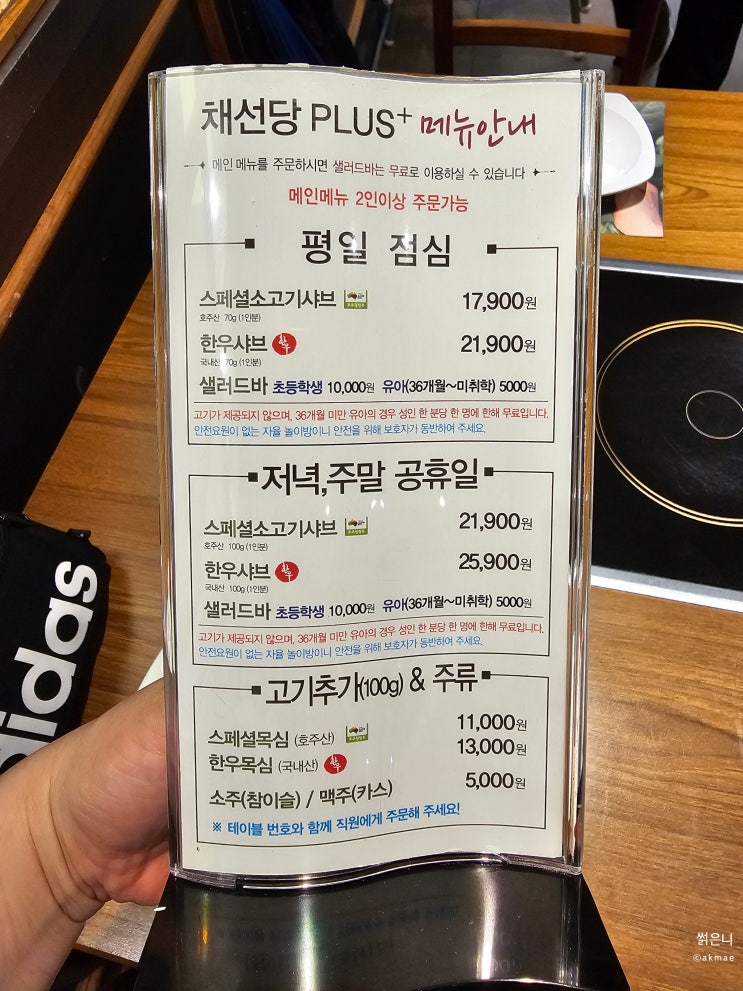 채선당 PLUS+ 메뉴안내
메인 메뉴를 주문하시면 샐러드바는 무료로 이용하실 수 있습니다
메인메뉴 2인이상 주문가능
평일 점심
스페셜소고기샤브 17,900원
호주산 70g (1인분)
한우샤브 한우 21,900원
국내산 70g (1인분)
샐러드바 초등학생 10,000원 유아(36개월~미취학) 5000원
고기가 제공되지 않으며, 36개월 미만 유아의 경우 성인 한 분당 한 명에 한해 무료입니다.
안전요원이 없는 자율 놀이방이니 안전을 위해 보호자가 동반하여 주세요.
저녁,주말 공휴일
스페셜소고기샤브 21,900원
호주산 100g (1인분)
한우샤브 한우 25,900원
국내산 100g (1인분)
샐러드바 초등학생 10,000원 유아(36개월~미취학) 5000원
고기가 제공되지 않으며, 36개월 미만 유아의 경우 성인 한 분당 한 명에 한해 무료입니다.
안전요원이 없는 자율 놀이방이니 안전을 위해 보호자가 동반하여 주세요.
고기추가(100g) & 주류
스페셜목심 (호주산) 11,000원
한우목심 (국내산) 한우 13,000원
소주(참이슬) / 맥주(카스) 5,000원
※ 테이블 번호와 함께 직원에게 주문해 주세요!
adidas
썱은니
©akmae